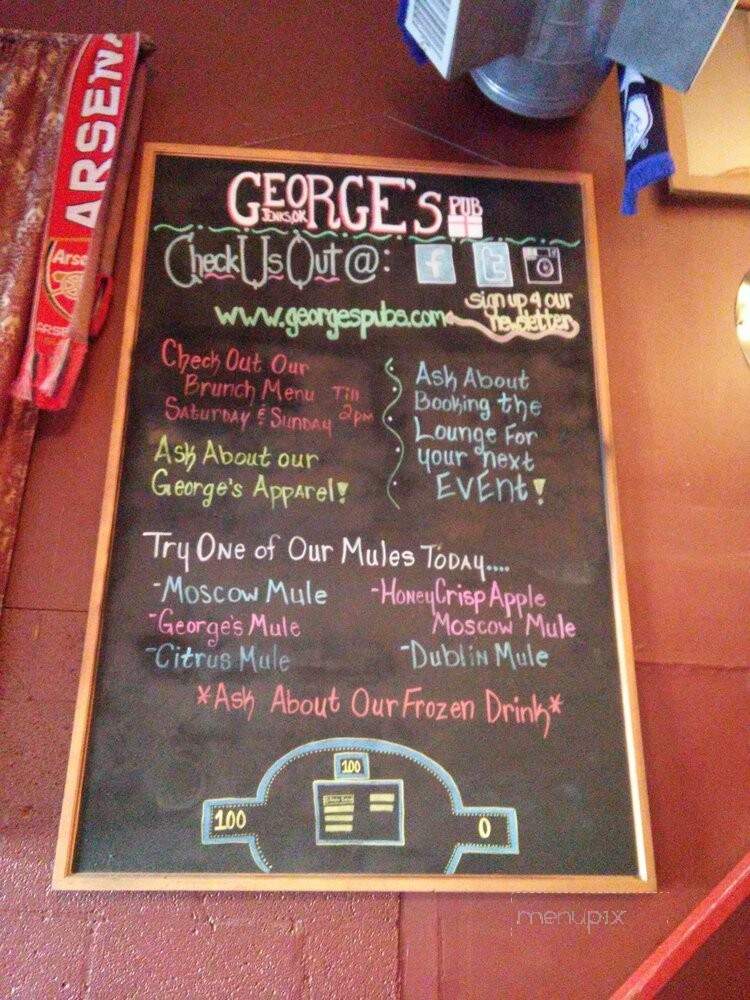 ARSENA
Arse
ARSE
GEORGE'S PUB
JENKS, OK
Check Us Out @:
f t
www.georgespubs.com
sign up 4 our
newsletter
Check Out Our
Brunch Menu Till
Saturday & Sunday 2pm
Ask About our
George's Apparel!
Ask About
Booking the
Lounge For
your next
EVEnt!
Try One of Our Mules Today....
-Moscow Mule
-George's Mule
-Citrus Mule
-HoneyCrisp Apple
Moscow Mule
-Dublin Mule
*Ask About Our Frozen Drink*
100
100
0
menupix